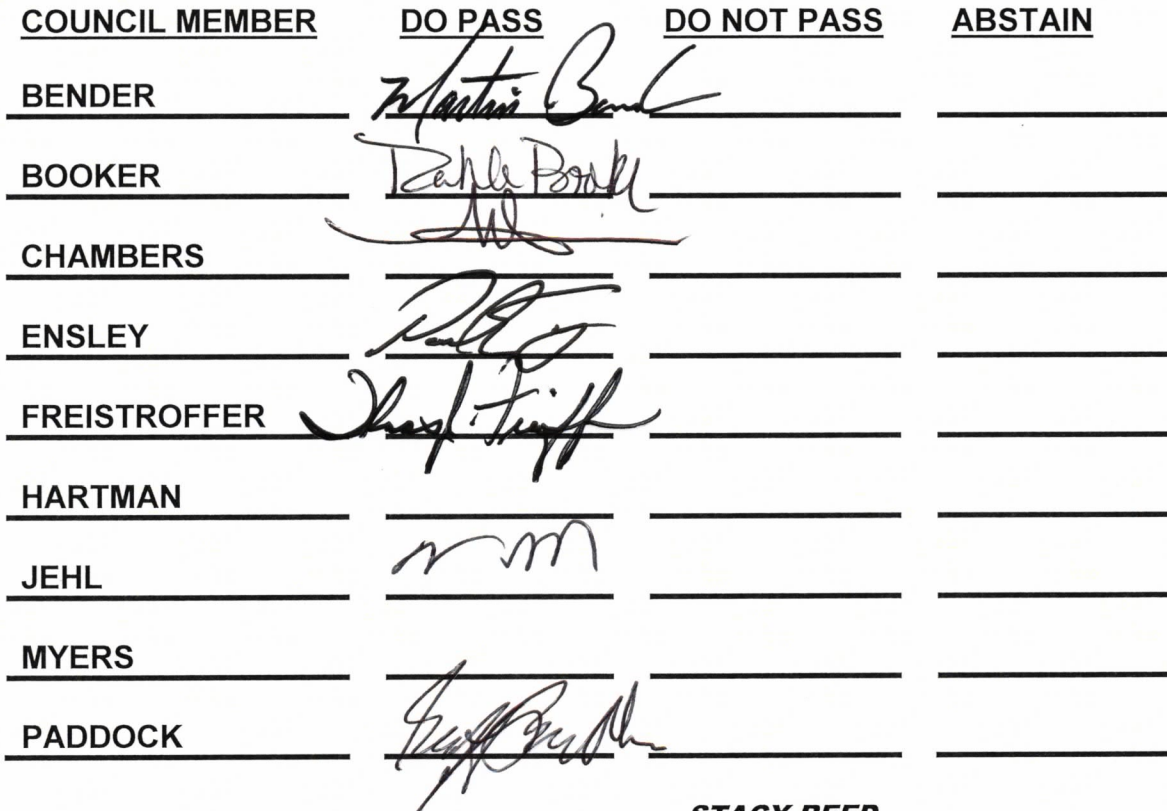 COUNCIL MEMBER DO PASS DO NOT PASS ABSTAIN
BENDER Martin Bend
BOOKER Booker
CHAMBERS
ENSLEY
FREISTROFFER
HARTMAN
JEHL
MYERS
PADDOCK
STACY REED